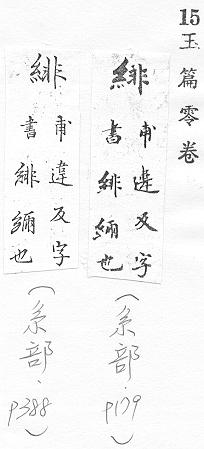 15玉篇零卷
緋
甫違反字
書緋緬也
(糸部·
p179)
緋
甫違反字
書緋緬也
(糸部·
p388)